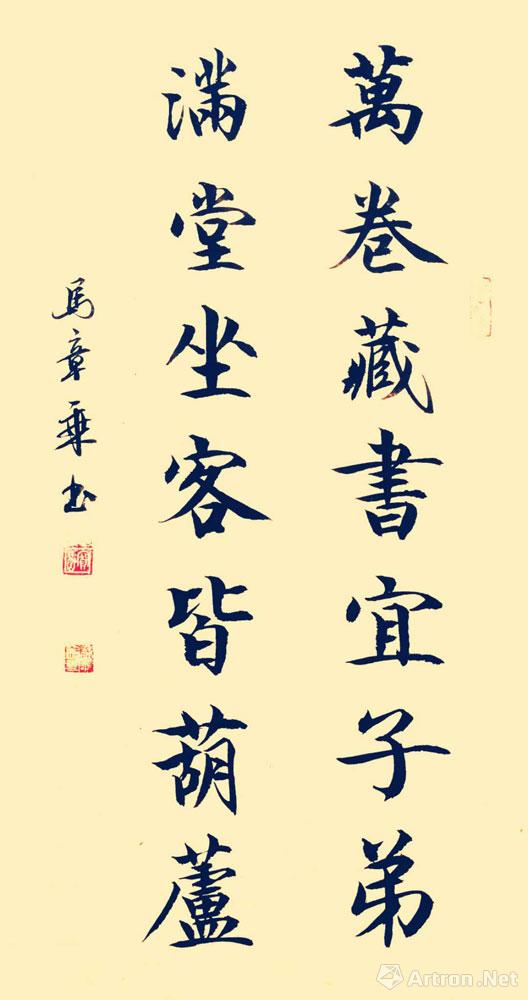 萬卷藏書宜子弟
滿堂坐客皆葫蘆
馬章乘书
Artron.Net